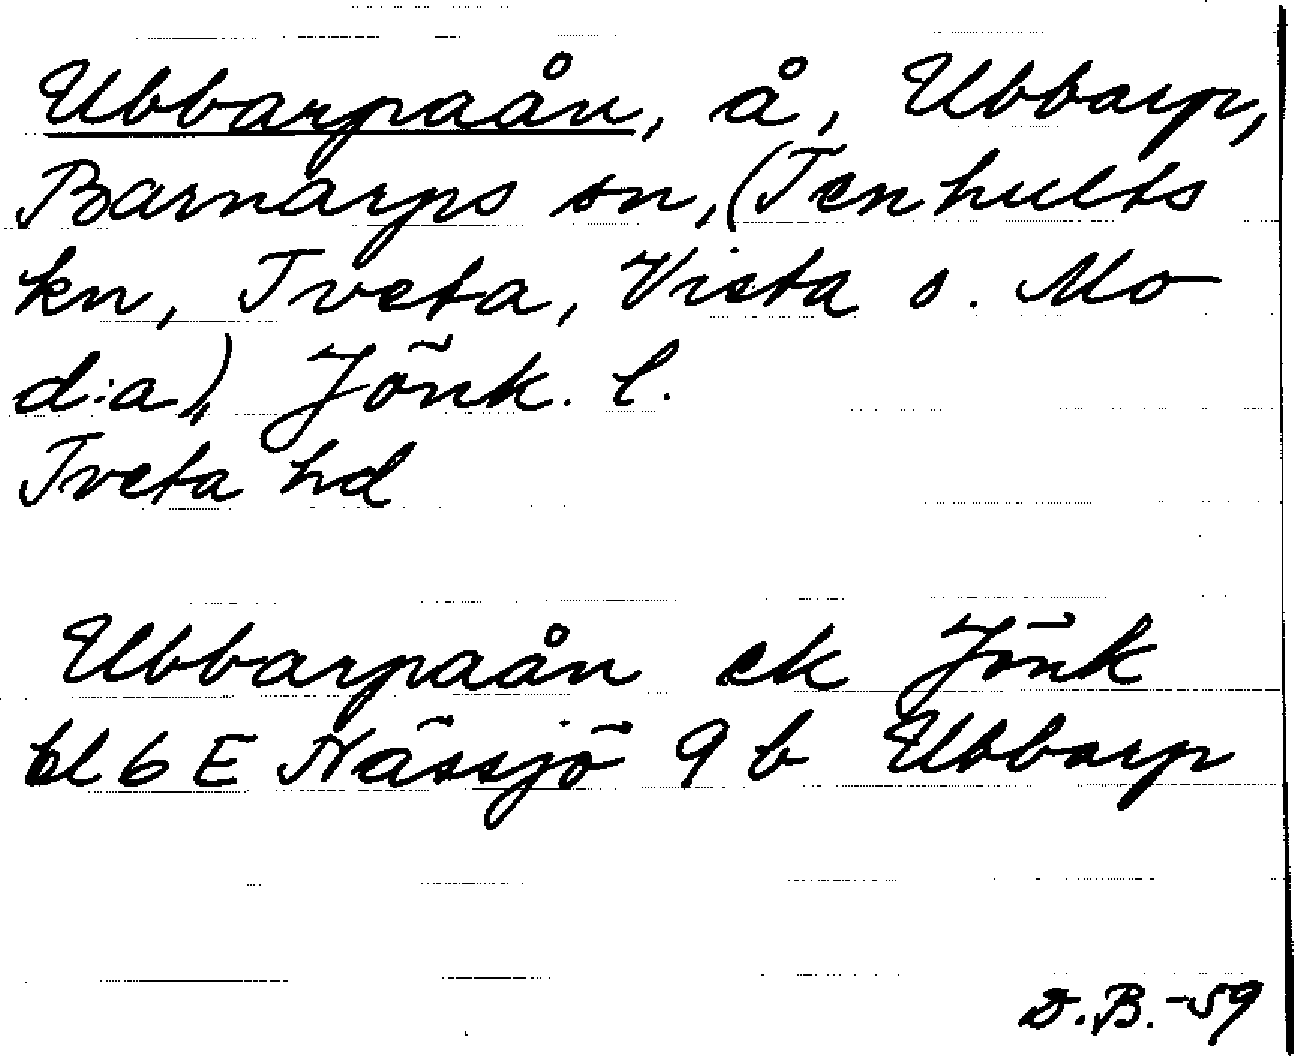 Ubbarpaån, å, Ubbarp,
Barnarps sn, (Tenhults
kn, Tveta, Vista o. Mo
d:a), Jönk. l.
Tveta hd
Ubbarpaån ek Jönk
bl 6 E Nässjö 9 b Ubbarp
D.B.-59